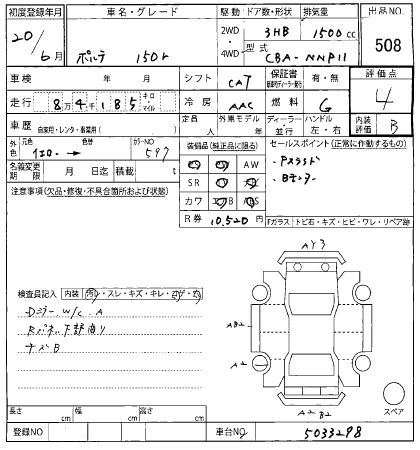 初度登録年月 車名・グレード 駆動 ドア数・形状 排気量 出品NO.
20年 6月 ポルテ 150r 2WD 4WD 3HB 1500cc 508
型式 CBA-NNP11
車検 年 月 シフト CAT 保証書 有・無 評価点 4
走行 8万4千185 キロ・マイル 冷房 AAC 燃料 G
車歴 自家用・レンタ・事業用( ) 定員 人 外車モデル 年 ディーラー・並行 ハンドル 左・右 内装評価 B
外色 元色 色替 カラーNO 597 装備品(純正品に限る) セールスポイント(正常に作動するもの)
イエロー → PS PW AW ・Pスライド
名義変更期限 月 日迄 積載 t SR ・Bモニター
カワ ABS
注意事項(欠品・修復・不具合箇所および状態) R券 10,520円 Fガラス トビ石・キズ・ヒビ・ワレ・リペア跡
AY3
検査員記入 内装 汚れ・スレ・キズ・キレ・コゲ・穴
Dドアー W/C A AB2
Rパネル下部曲り A2
ナズB
A2 B2 スペア
長さ cm 幅 cm 高さ cm
登録NO 車台NO 5033298